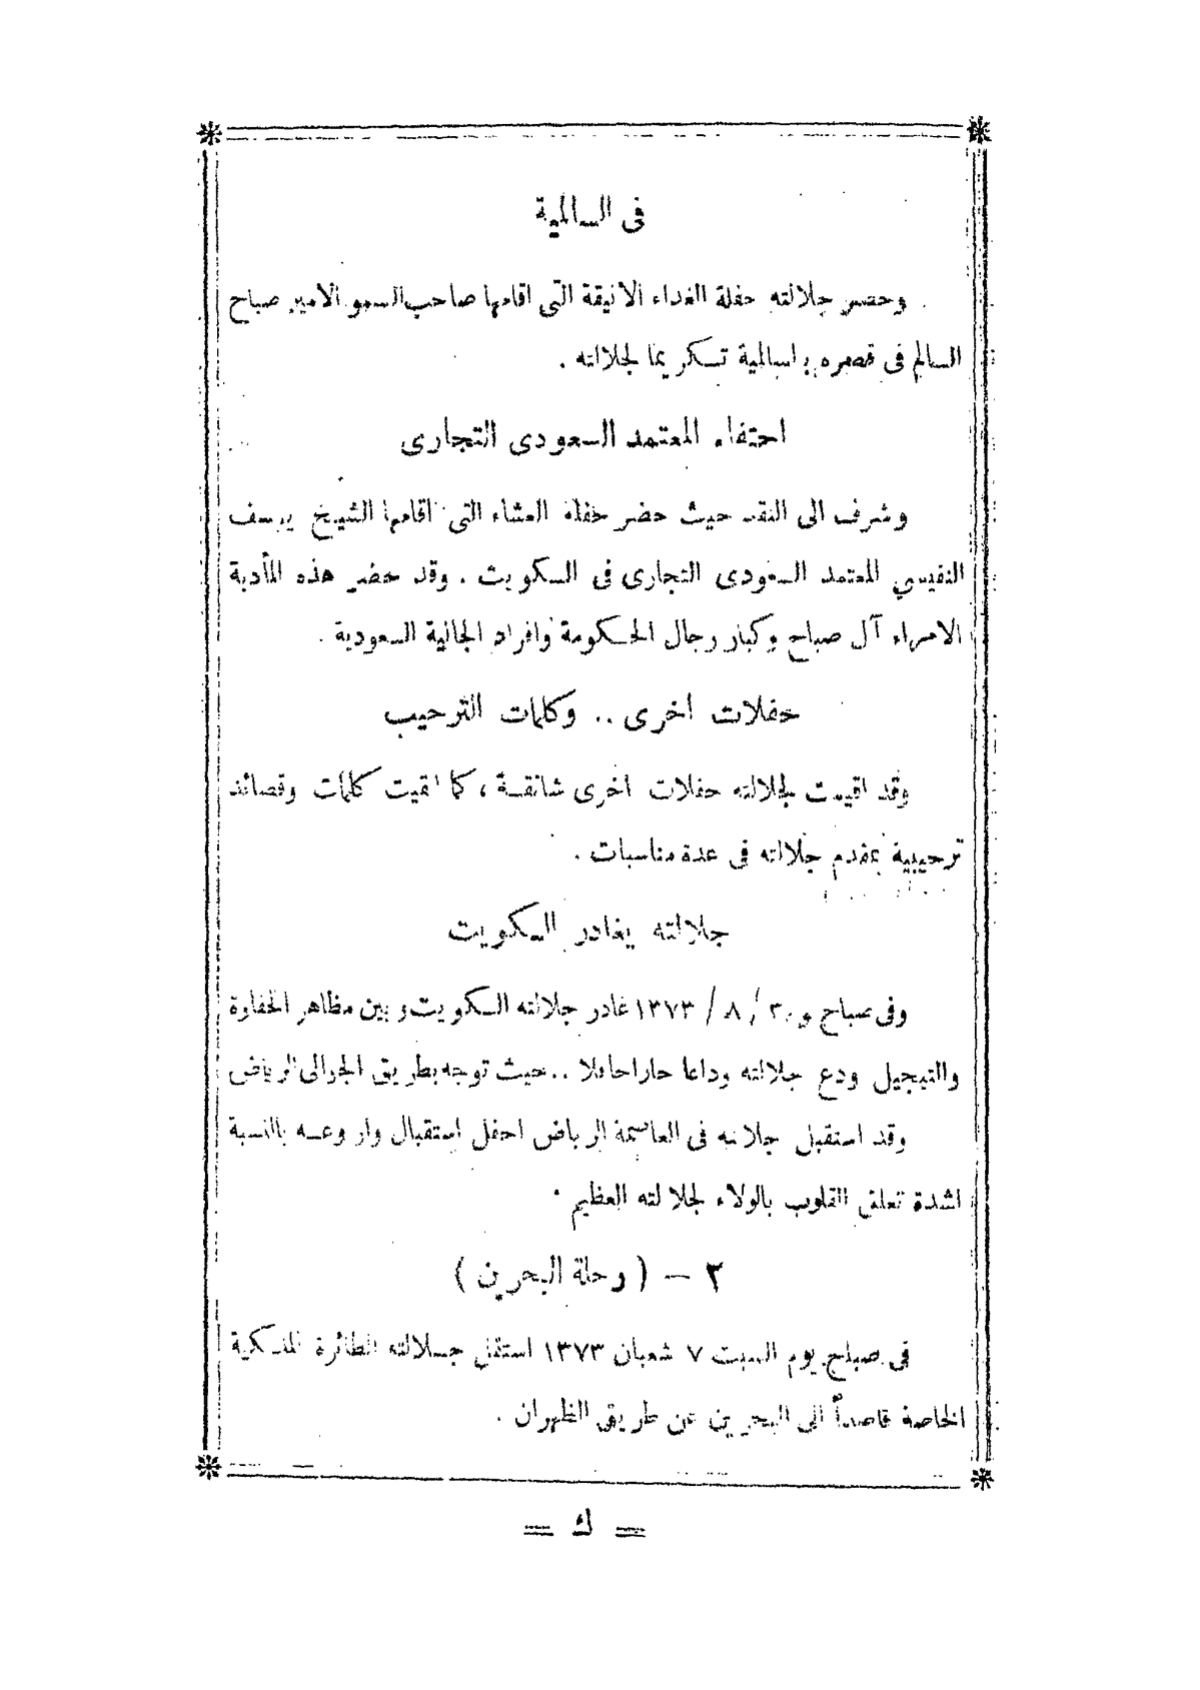 فى السالمية
وحضر جلالته حفلة الغداء الانيقة التى اقامها صاحب السمو الامير صباح
السالم فى قصره بالسالمية تكريما لجلالته .
احتفاء المعتمد السعودى التجارى
وشرف الى النقد حيث حضر حفلة العشاء التى اقامها الشيخ يوسف
النفيسي المعتمد السعودى التجارى فى الكويت . وقد حضر هذه المأدبة
الامراء آل صباح وكبار رجال الحكومة وافراد الجالية السعودية .
حفلات اخرى .. وكلمات الترحيب
وقد اقيمت لجلالته حفلات اخرى شائقة ، كما القيت كلمات وقصائد
ترحيبية بمقدم جلالته فى عدة مناسبات .
جلالته يغادر الكويت
وفى صباح ٣٠ / ٨ / ١٣٧٣ غادر جلالته الكويت وبين مظاهر الحفاوة
والتبجيل ودع جلالته وداعا حارا حافلا .. حيث توجه بطريق الجو الى الرياض
وقد استقبل جلالته فى العاصمة الرياض احفل استقبال واروعه بالنسبة
لشدة تعلق القلوب بالولاء لجلالته العظيم .
٢ – ( رحلة البحرين )
فى صباح يوم السبت ٧ شعبان ١٣٧٣ استقل جلالته الطائرة الملكية
الخاصة قاصداً الى البحرين عن طريق الظهران .
= ك =